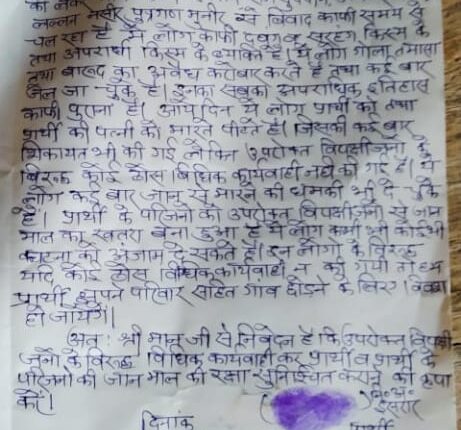 लल्लन नसीर पुत्रगण मुनीर से विवाद काफी समय से
चल रहा है ये लोग काफी दबंग व सरहंग किस्म के
तथा अपराधी किस्म के व्यक्ति है। ये लोग गोला तमाशा
तथा बारूद का अवैध कारोबार करते है तथा कई बार
जेल जा चुके है। इनका सबका अपराधिक इतिहास
काफी पुराना है। आये दिन ये लोग प्रार्थी को तथा
प्रार्थी की पत्नी को मारते पीटते है। जिसकी कई बार
शिकायत भी की गई लेकिन उपरोक्त विपक्षीजनो के
विरूद्ध कोई ठोस विधिक कार्यवाही नही की गई है। ये
लोग कई बार जान से मारने की धमकी भी दे चुके
है। प्रार्थी के परिजनो को उपरोक्त विपक्षीजनो से जान
माल का खतरा बना हुआ है ये लोग कभी भी कोई भी
घटना को अंजाम दे सकते है। इन लोगो के विरूद्ध
यदि कोई ठोस विधिक कार्यवाही न की गयी तो हम
प्रार्थी अपने परिवार सहित गांव छोडने के लिए विवश
हो जायेगे।
अतः श्री मान जी से निवेदन है कि उपरोक्त विपक्षी
जनो के विरूद्ध विधिक कार्यवाही कर प्रार्थी व प्रार्थी के
परिजनो की जान माल की रक्षा सुनिश्चित कराने की कृपा
करें।
दिनांक प्रार्थी